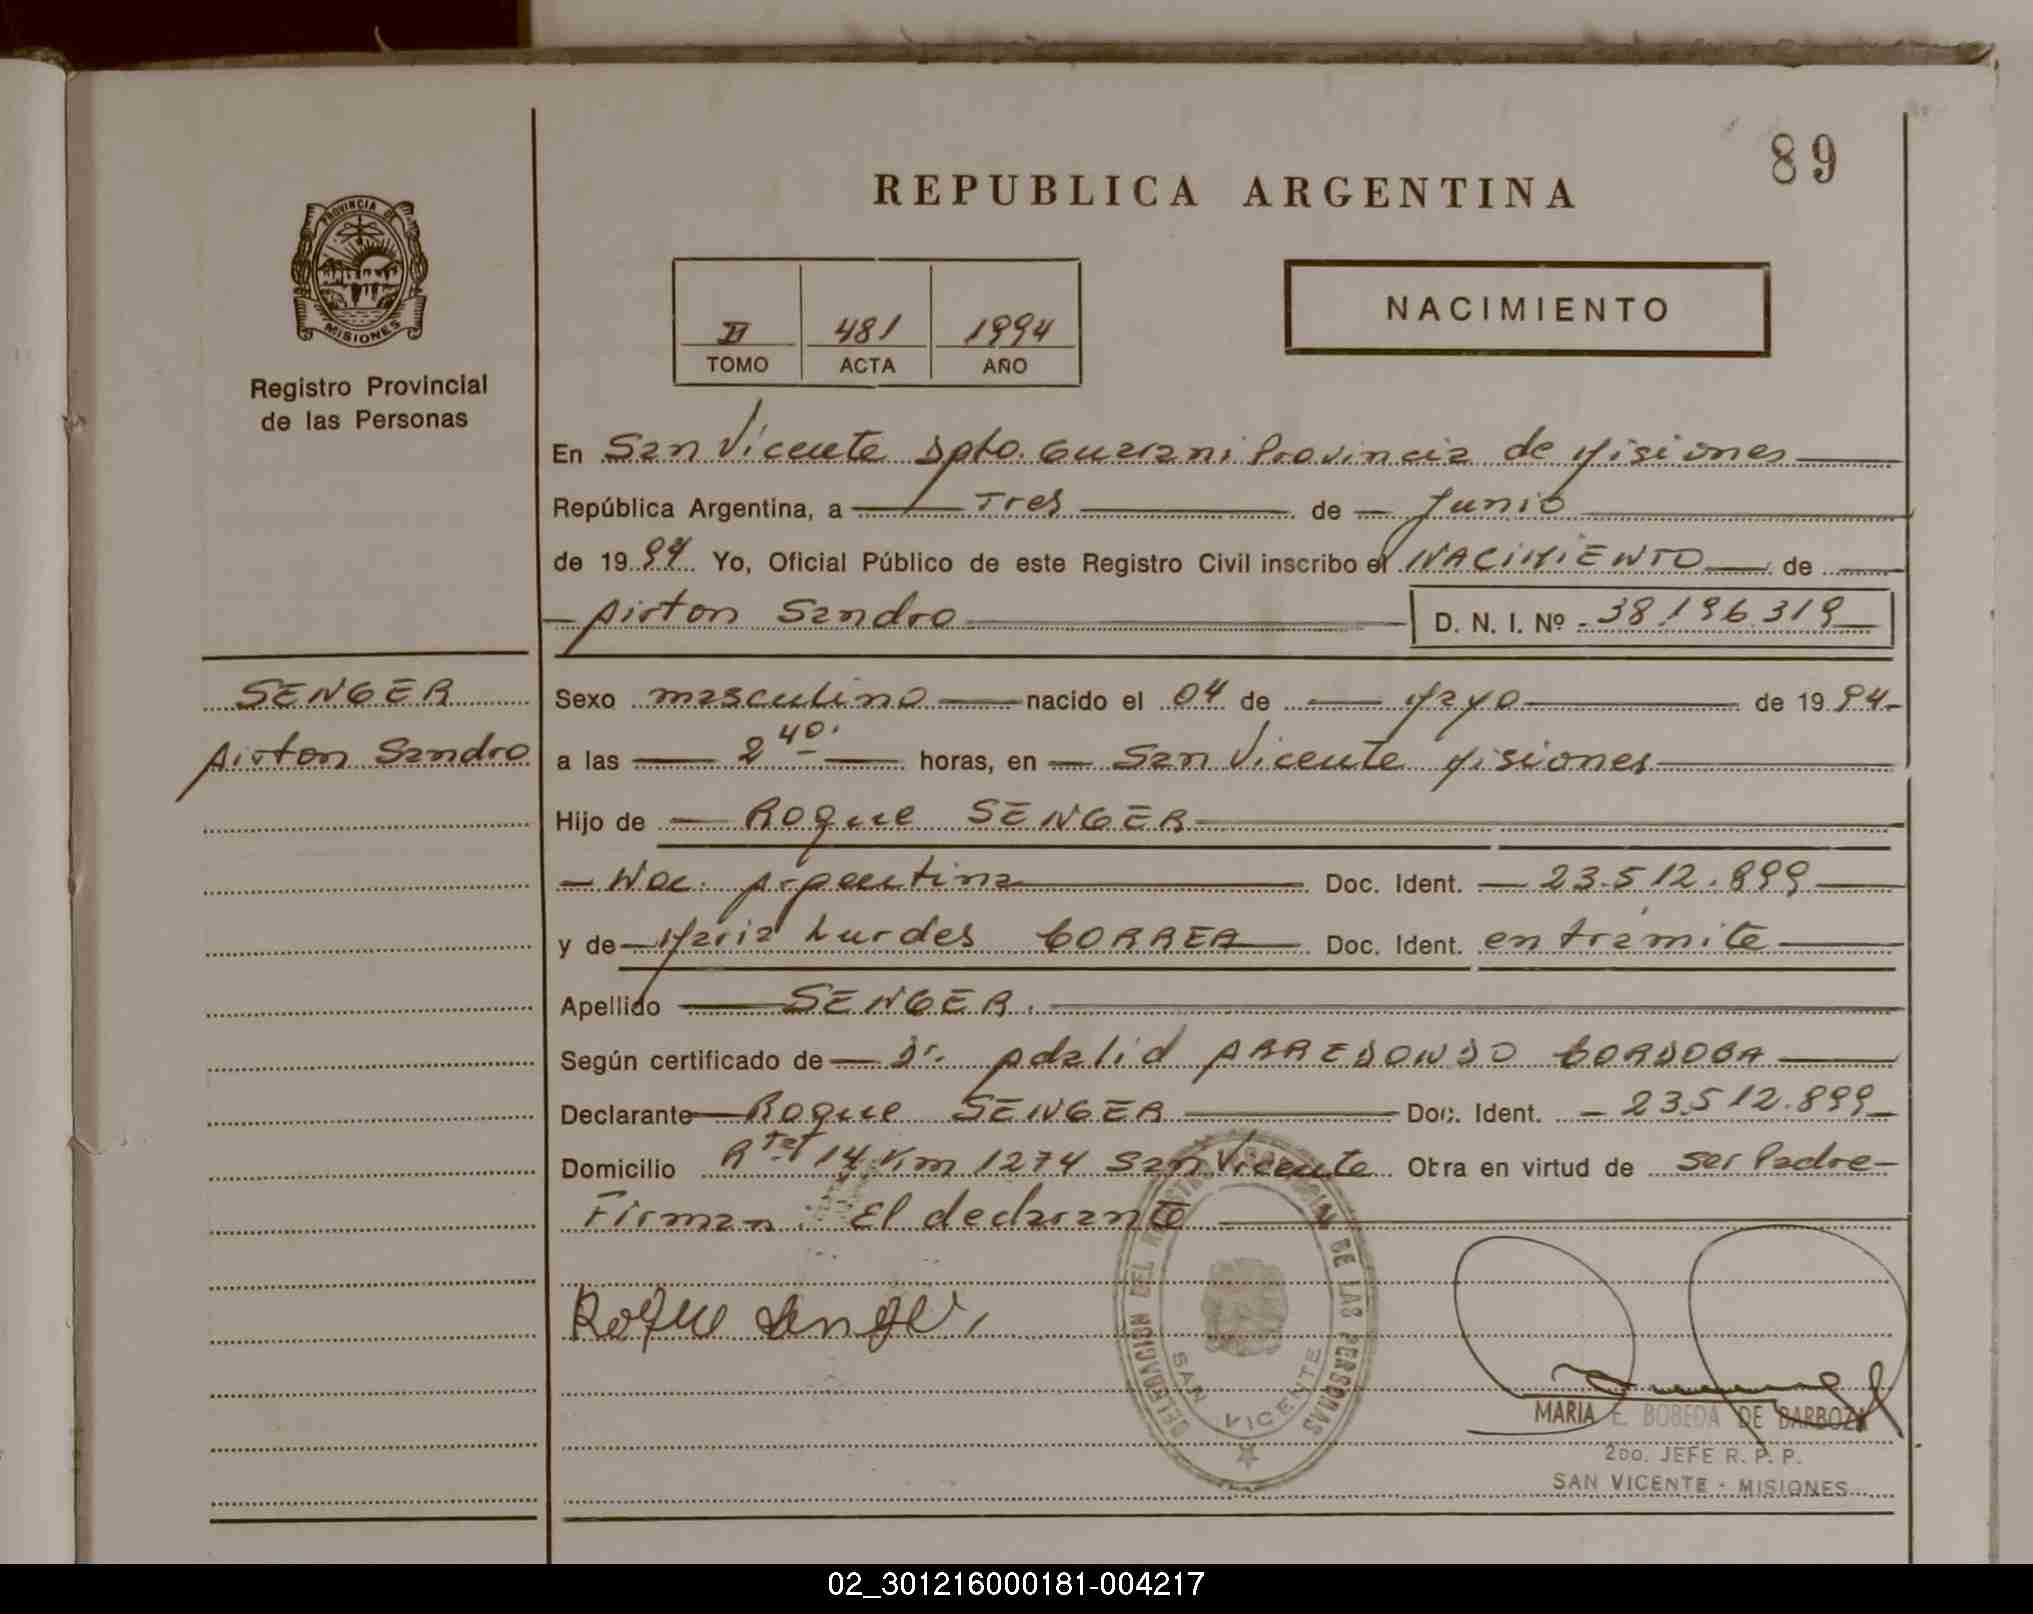 89
REPUBLICA ARGENTINA
PROVINCIA DE
MISIONES
Registro Provincial
de las Personas
II 481 1994
TOMO ACTA AÑO
NACIMIENTO
En San Vicente Dpto. Guarani Provincia de Misiones
República Argentina, a Tres de Junio
de 1994 Yo, Oficial Público de este Registro Civil inscribo el NACIMIENTO de
Airton Sandro D. N. I. Nº 38.196.319
SENGER
Airton Sandro
Sexo masculino nacido el 04 de Mayo de 1994
a las 2 40. horas, en San Vicente Misiones
Hijo de Roque SENGER
Nac. Argentina Doc. Ident. 23.512.899
y de Maria Lurdes CORREA Doc. Ident. en trámite
Apellido SENGER.
Según certificado de Dr. Adalid ARREDONDO CORDOBA
Declarante Roque SENGER Doc. Ident. 23.512.899
Domicilio Rta 14 Km 1274 San Vicente Obra en virtud de ser Padre
Firman El declarante
Roque Senger
DELEGACION DEL REGISTRO PROVINCIAL DE LAS PERSONAS
SAN VICENTE
MARIA E. BOBEDA DE BARBOZA
2DO. JEFE R. P. P.
SAN VICENTE - MISIONES
02_301216000181-004217